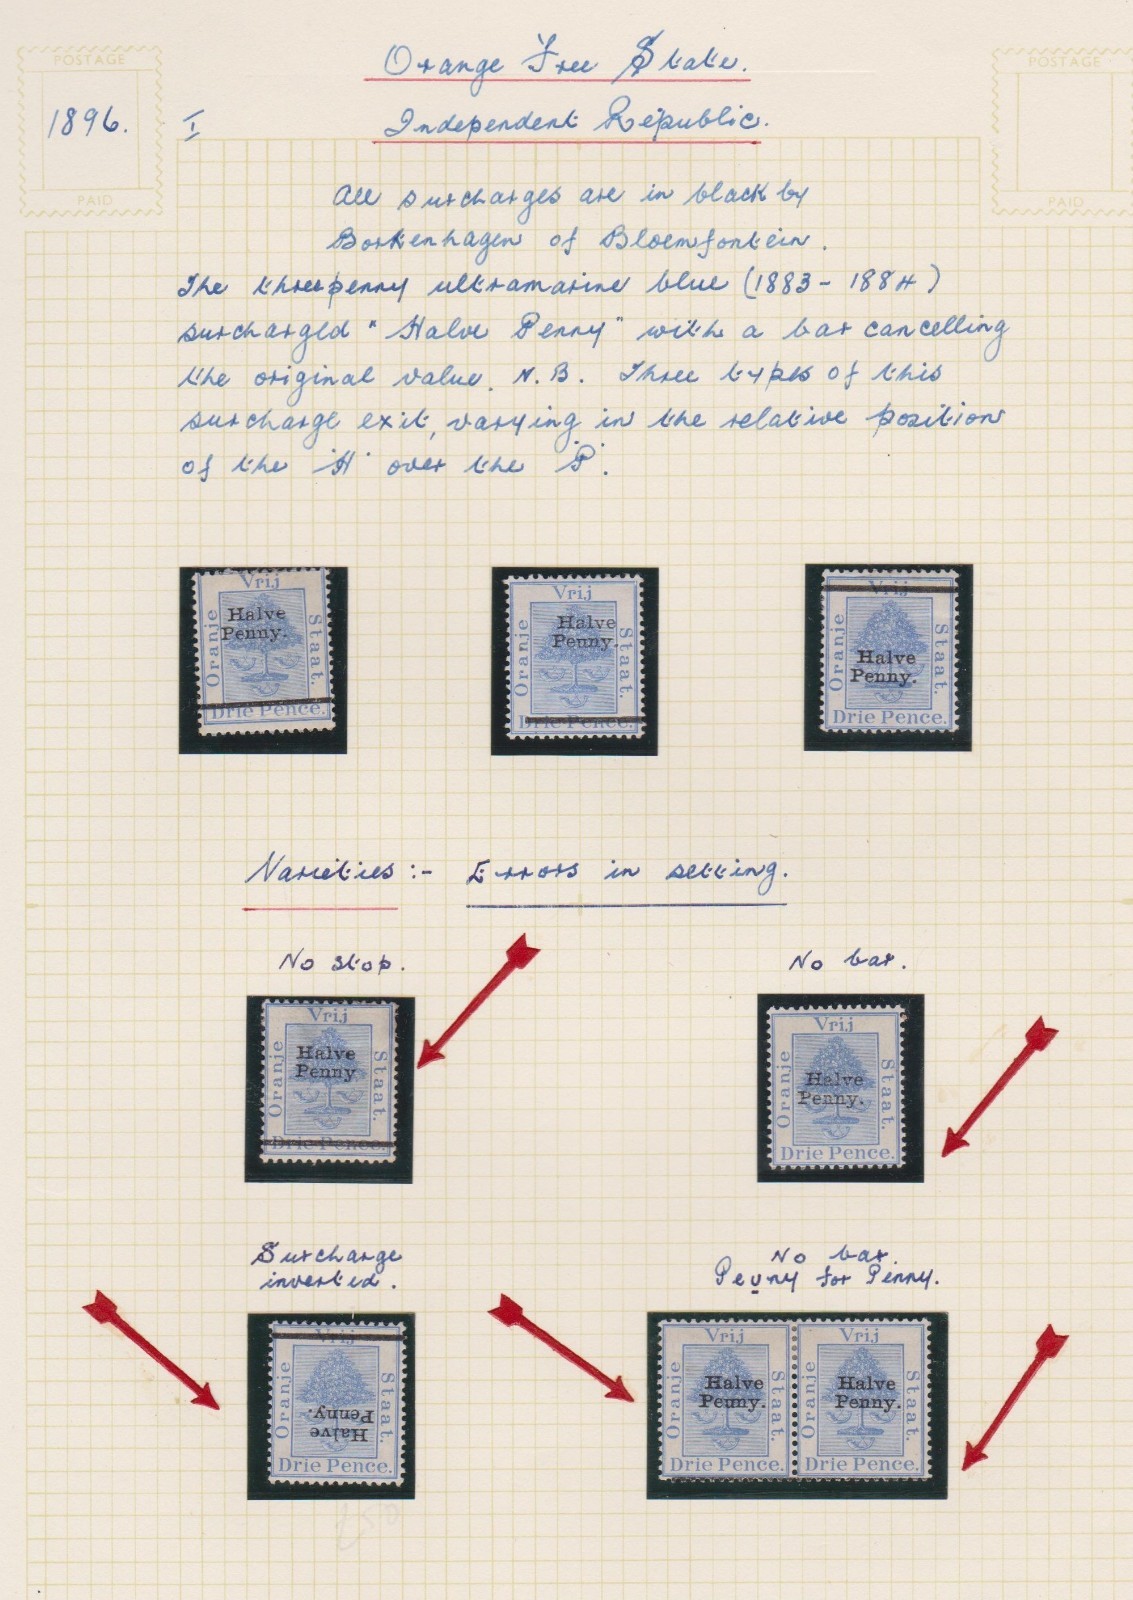 POSTAGE
PAID
POSTAGE
PAID
Orange Free State.
1896.
I
Independent Republic.
All surcharges are in black by
Borkenhagen of Bloemfontein.
The threepenny ultramarine blue (1883-1884)
surcharged "Halve Penny" with a bar cancelling
the original value. N.B. Three types of this
surcharge exit, varying in the relative position
of the 'H' over the 'P'.
Vrij
Oranje
Staat.
Halve
Penny.
Drie Pence.
Vrij
Oranje
Staat.
Halve
Penny.
Drie Pence.
Vrij
Oranje
Staat.
Halve
Penny.
Drie Pence.
Varieties :- Errors in setting.
No stop.
No bar.
Vrij
Oranje
Staat.
Halve
Penny
Drie Pence.
Vrij
Oranje
Staat.
Halve
Penny.
Drie Pence.
Surcharge
inverted.
No bar.
Peuny for Penny.
Vrij
Oranje
Staat.
Halve
Penny.
Drie Pence.
Vrij
Oranje
Staat.
Halve
Peuny.
Drie Pence.
Vrij
Oranje
Staat.
Halve
Penny.
Drie Pence.
£50